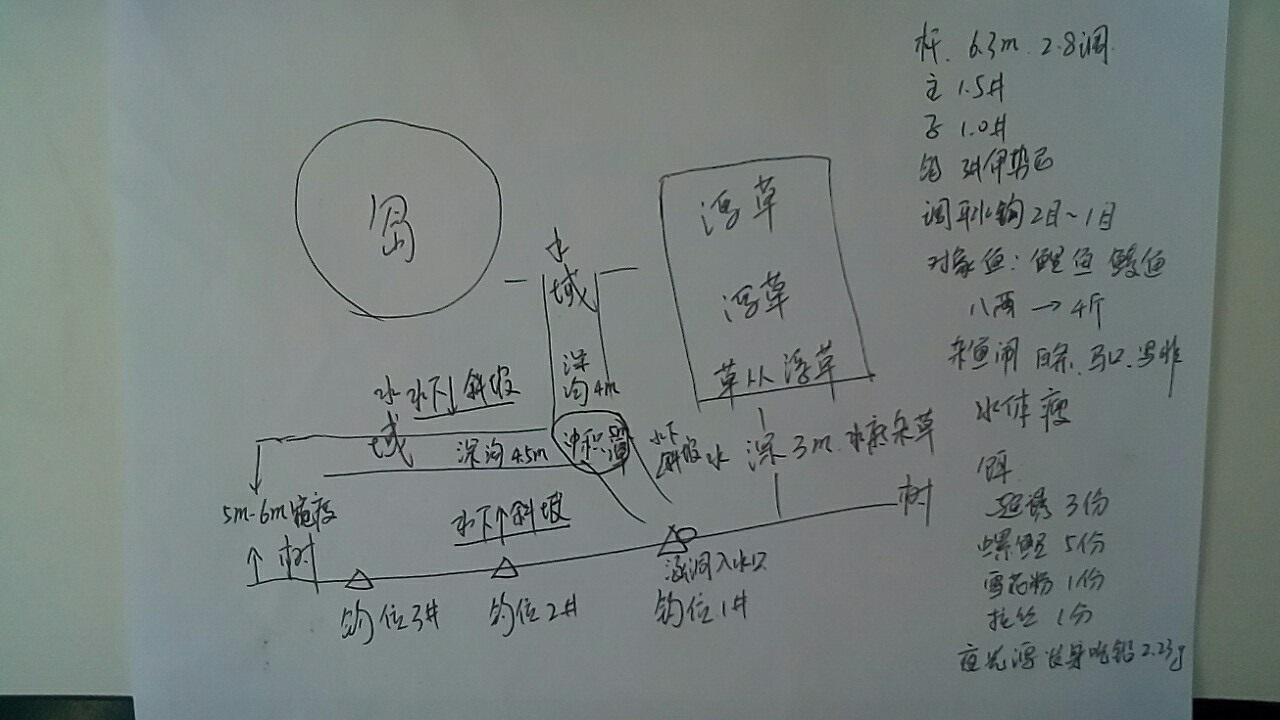 岛
水
域
深
沟4m
浮草
浮草
草从浮草
水
域
水下↓斜坡
深沟4.5m
冲积
水下
斜坡
水
深3m.水底杂草
5m-6m宽度
水下个斜坡
树
↑树
涵洞入水口
钓位3#
钓位2#
钓位1#
杆. 6.3m 2.8调
主 1.5#
子 1.0#
钩 3#伊势尼
调平水钩2目~1目
对象鱼:鲤鱼 鳊鱼
八两→4斤
杂鱼闹 白条.马口.罗非
水体瘦
饵
诱3份
螺鲤 5份
雪花粉1份
拉丝 1份
夜光漂 吃铅2.23g